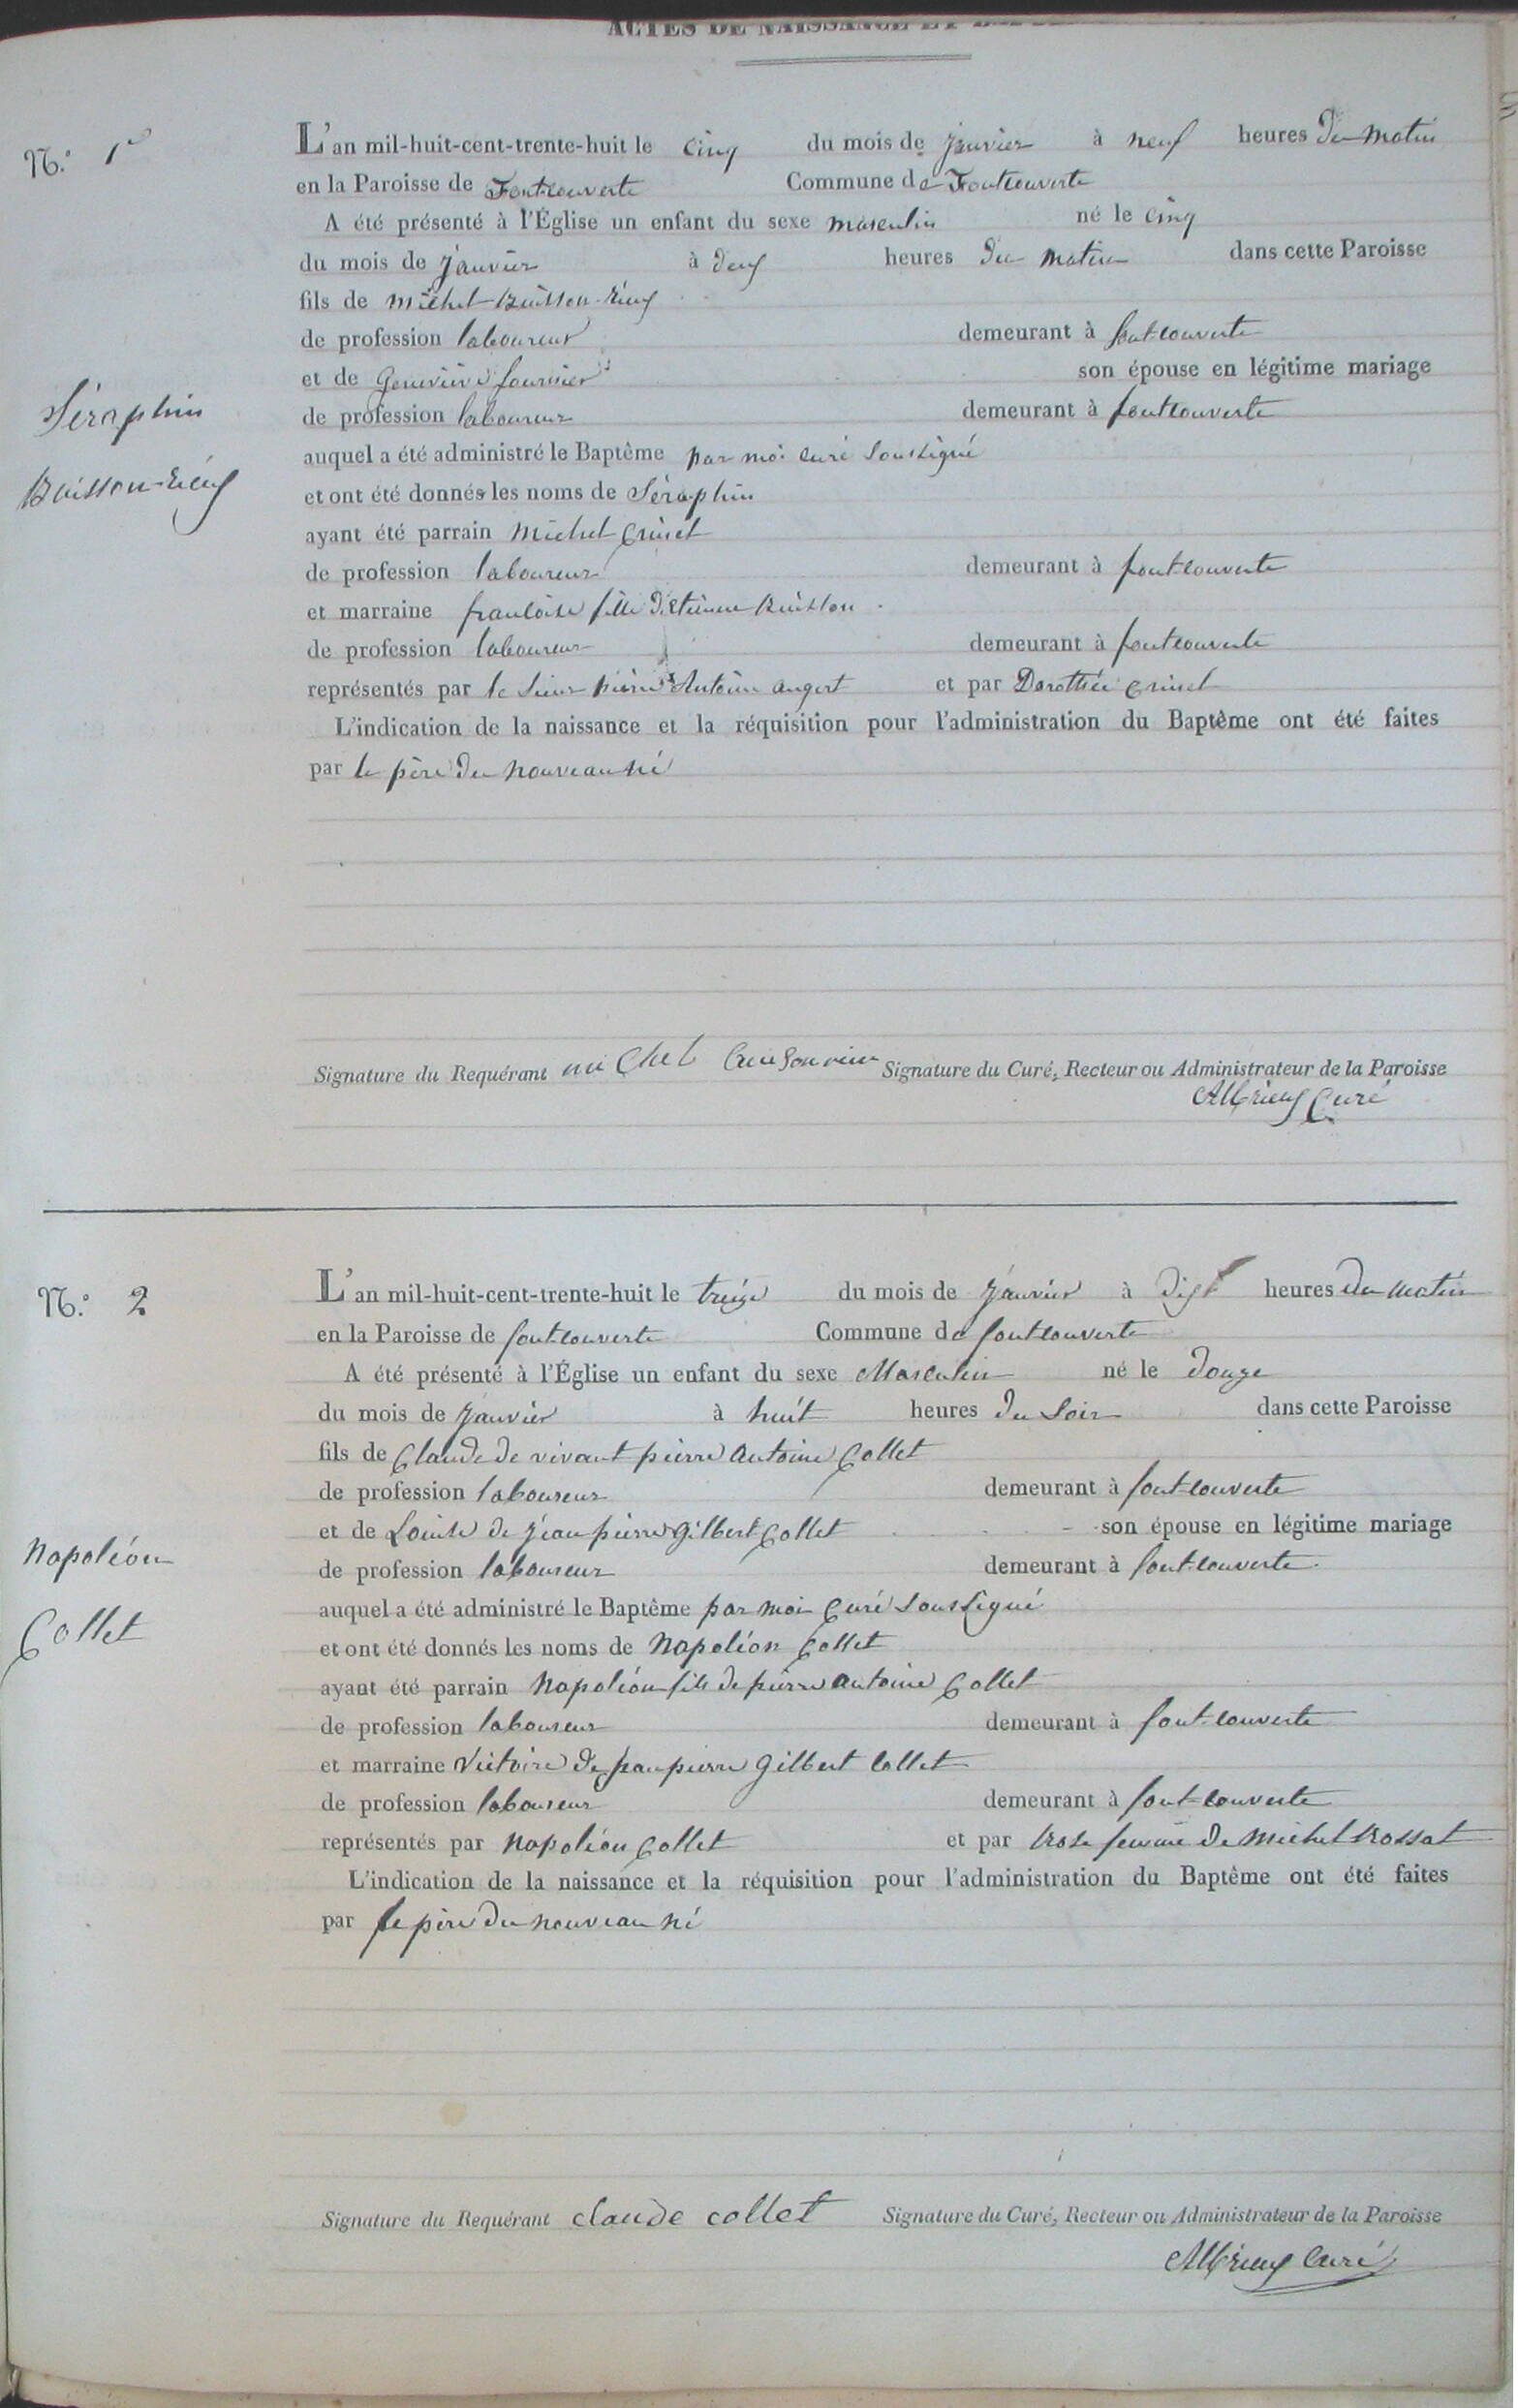 ACTES DE NAISSANCE ET
N.º 1er
L'an mil-huit-cent-trente-huit le cinq du mois de janvier à neuf heures du matin
en la Paroisse de Fontcouverte Commune de Fontcouverte
A été présenté à l'Église un enfant du sexe masculin né le cinq
du mois de janvier à deux heures du matin dans cette Paroisse
fils de michel Buisson-rieux
de profession laboureur demeurant à fontcouverte
et de Geneviève fournier son épouse en légitime mariage
Séraphin
de profession laboureur demeurant à fontcouverte
auquel a été administré le Baptême par moi curé soussigné
Buisson-rieux
et ont été donnés les noms de Séraphin
ayant été parrain michel Crinet
de profession laboureur demeurant à fontcouverte
et marraine françoise fille d'etienne Buisson
de profession laboureur demeurant à fontcouverte
représentés par le sieur pierre Antoine augert et par Dorothée crinel
L'indication de la naissance et la réquisition pour l'administration du Baptême ont été faites
par le père du nouveau né
Signature du Requérant mi Chel Signature du Curé, Recteur ou Administrateur de la Paroisse
Albrieux Curé
N.º 2
L'an mil-huit-cent-trente-huit le treize du mois de janvier à dix heures du matin
en la Paroisse de fontcouverte Commune de fontcouverte
A été présenté à l'Église un enfant du sexe Masculin né le douze
du mois de janvier à huit heures du soir dans cette Paroisse
fils de Claude de vivant pierre antoine Collet
de profession laboureur demeurant à fontcouverte
et de Louise de jean pierre gilbert Collet son épouse en légitime mariage
Napoléon
de profession laboureur demeurant à fontcouverte
auquel a été administré le Baptême par moi Curé soussigné
Collet
et ont été donnés les noms de Napoléon Collet
ayant été parrain Napoléon fils de pierre antoine Collet
de profession laboureur demeurant à fontcouverte
et marraine Victoire de jean pierre gilbert collet
de profession laboureur demeurant à fontcouverte
représentés par Napoléon Collet et par Rose femme de Michel Rossat
L'indication de la naissance et la réquisition pour l'administration du Baptême ont été faites
par le père du nouveau né
Signature du Requérant claude collet Signature du Curé, Recteur ou Administrateur de la Paroisse
Albrieux Curé